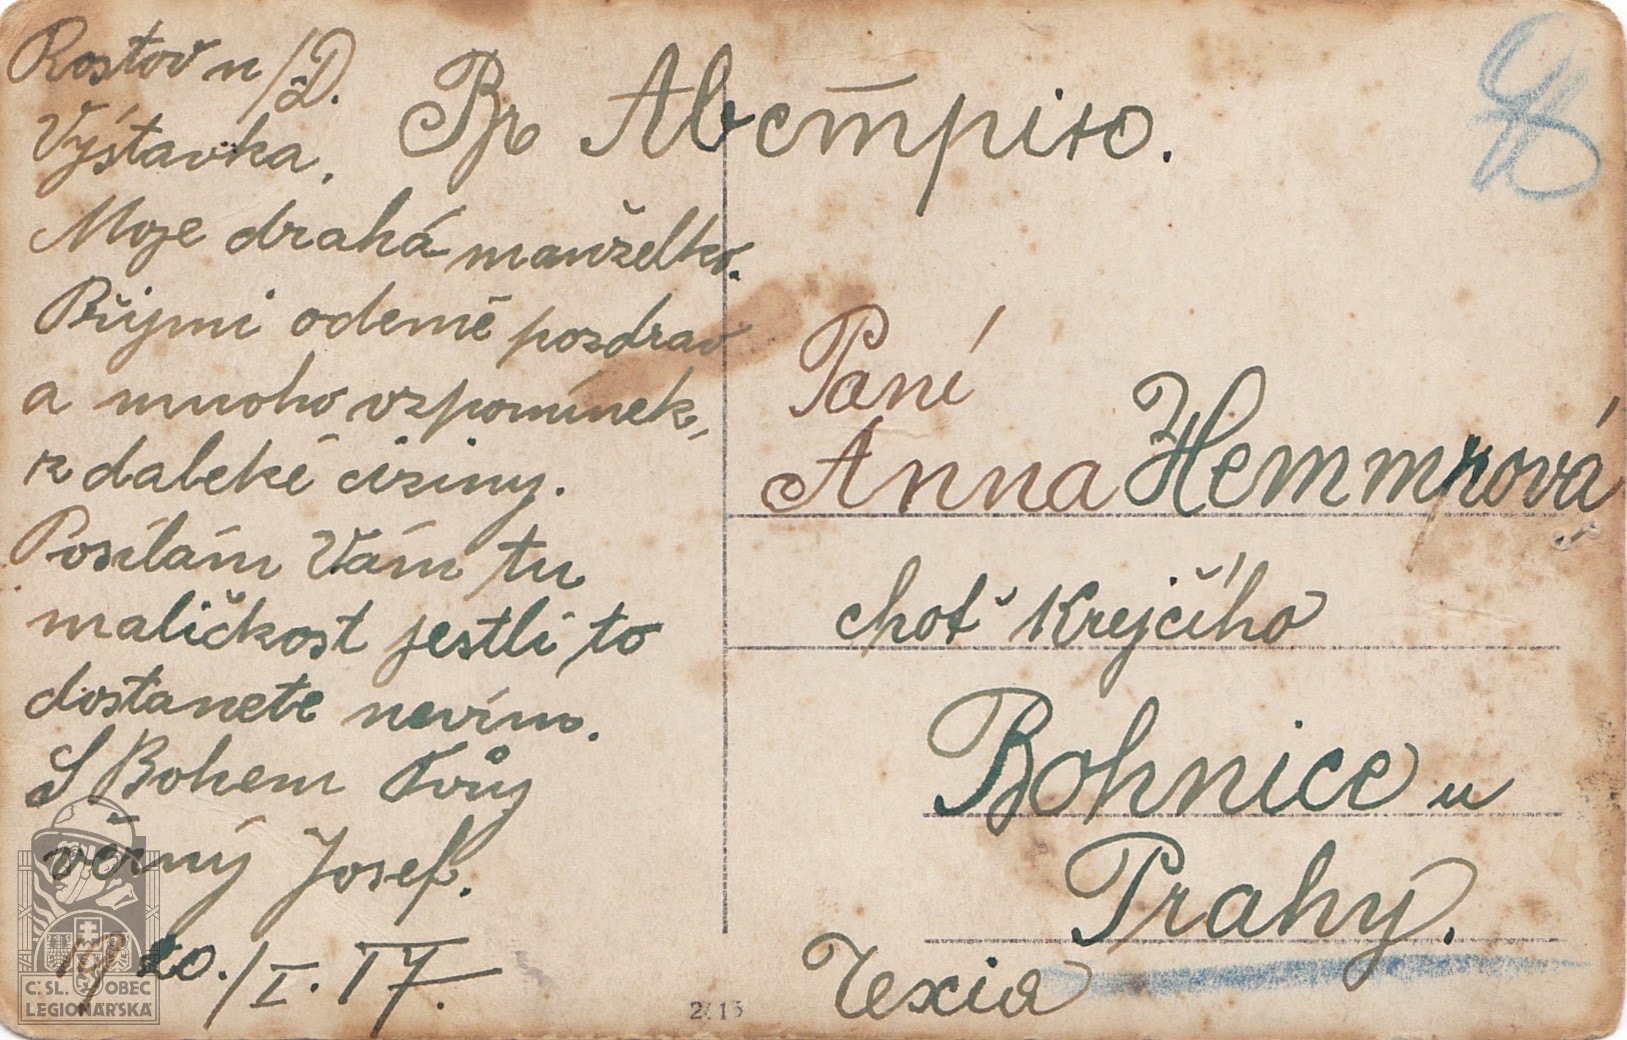 Rostov n/D.
Výstavka.
Moje drahá manželko.
Přijmi odemě pozdrav
a mnoho vzpomínek,
z daleké ciziny.
Posílám Vám tu
maličkost jestli to
dostanete nevím.
S Bohem Tvůj
věrný Josef.
20./I. 17.
Paní
Anna Hemmrová
choť Krejčího
Bohnice u
Prahy.
Čexia
2/15
Č:SL. OBEC
LEGIONÁŘSKÁ